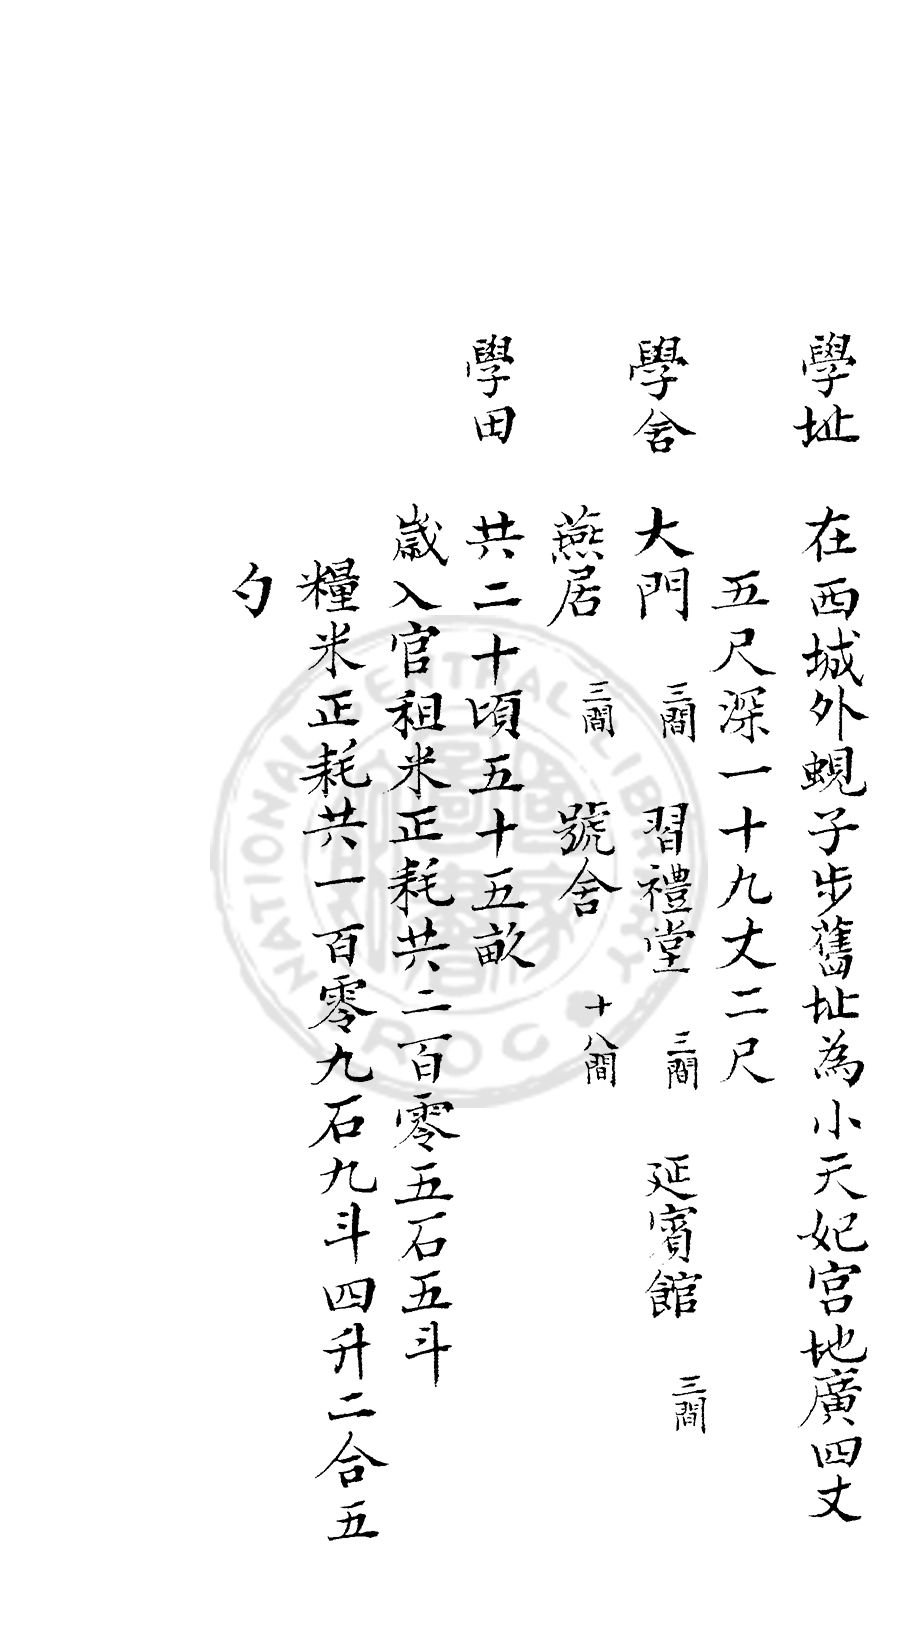 學址　在西城外蜆子步舊址為小天妃宮地廣四丈
五尺深一十九丈二尺
學舍　大門　三間　習禮堂　三間　延賓館　三間
燕居　三間　號舍　十八間
學田　共二十頃五十五畝
歲入官租米正耗共二百零五石五斗
糧米正耗共一百零九石九斗四升二合五
勺
NATIONAL CENTRAL LIBRARY
ROC